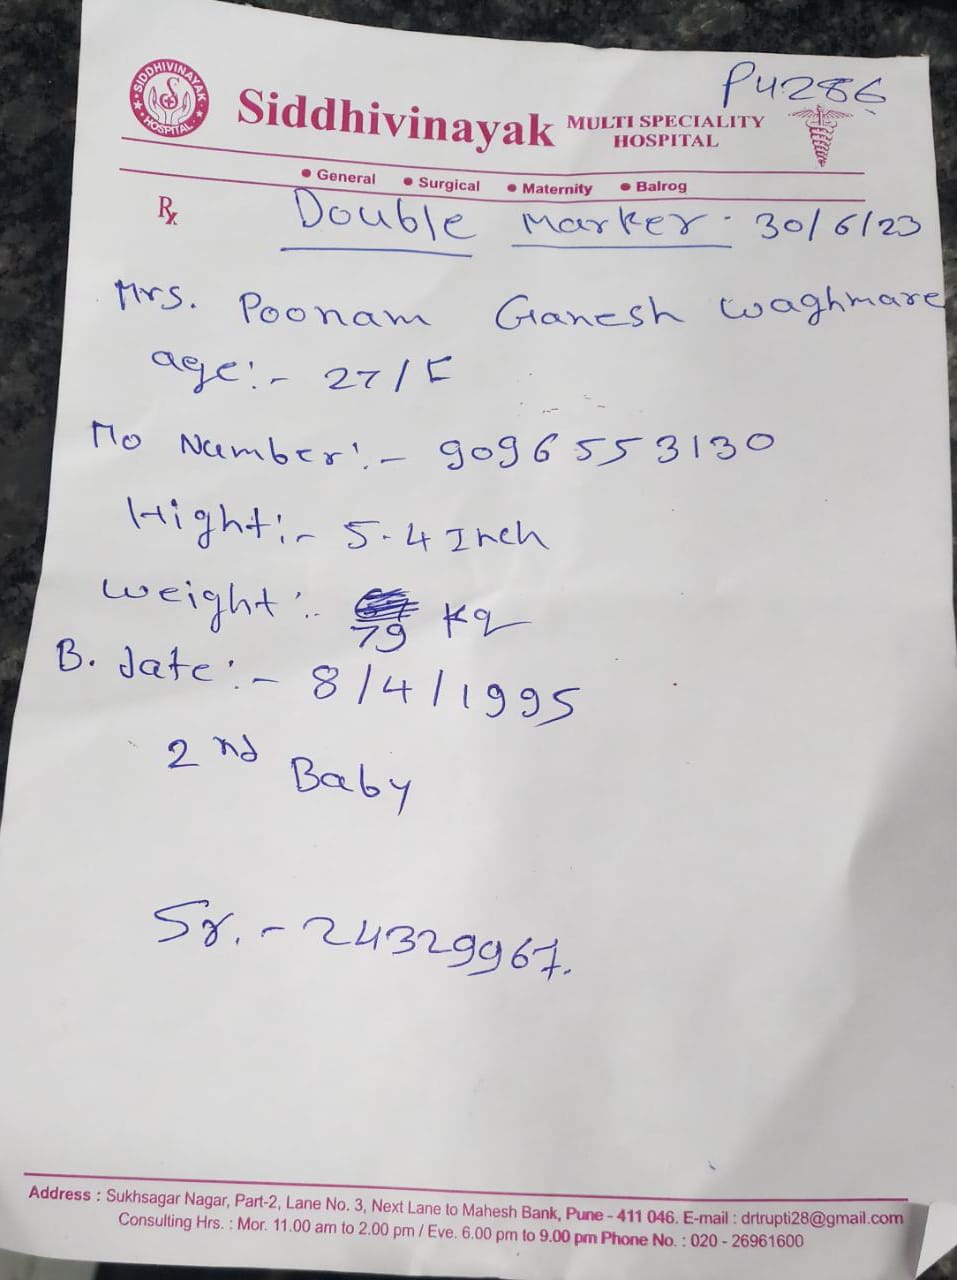 P4286
SIDDHIVINAYAK HOSPITAL
Siddhivinayak MULTI SPECIALITY HOSPITAL
• General • Surgical • Maternity • Balrog
Rx Double Marker - 30/6/23
Mrs. Poonam Ganesh Waghmare
age:- 27/F
Mo Number:- 9096553130
Hight:- 5.4 Inch
Weight:- 79 Kg
B. date:- 8/4/1995
2nd Baby
Sr. - 24329967.
Address : Sukhsagar Nagar, Part-2, Lane No. 3, Next Lane to Mahesh Bank, Pune - 411 046. E-mail : drtrupti28@gmail.com
Consulting Hrs. : Mor. 11.00 am to 2.00 pm / Eve. 6.00 pm to 9.00 pm Phone No. : 020 - 26961600